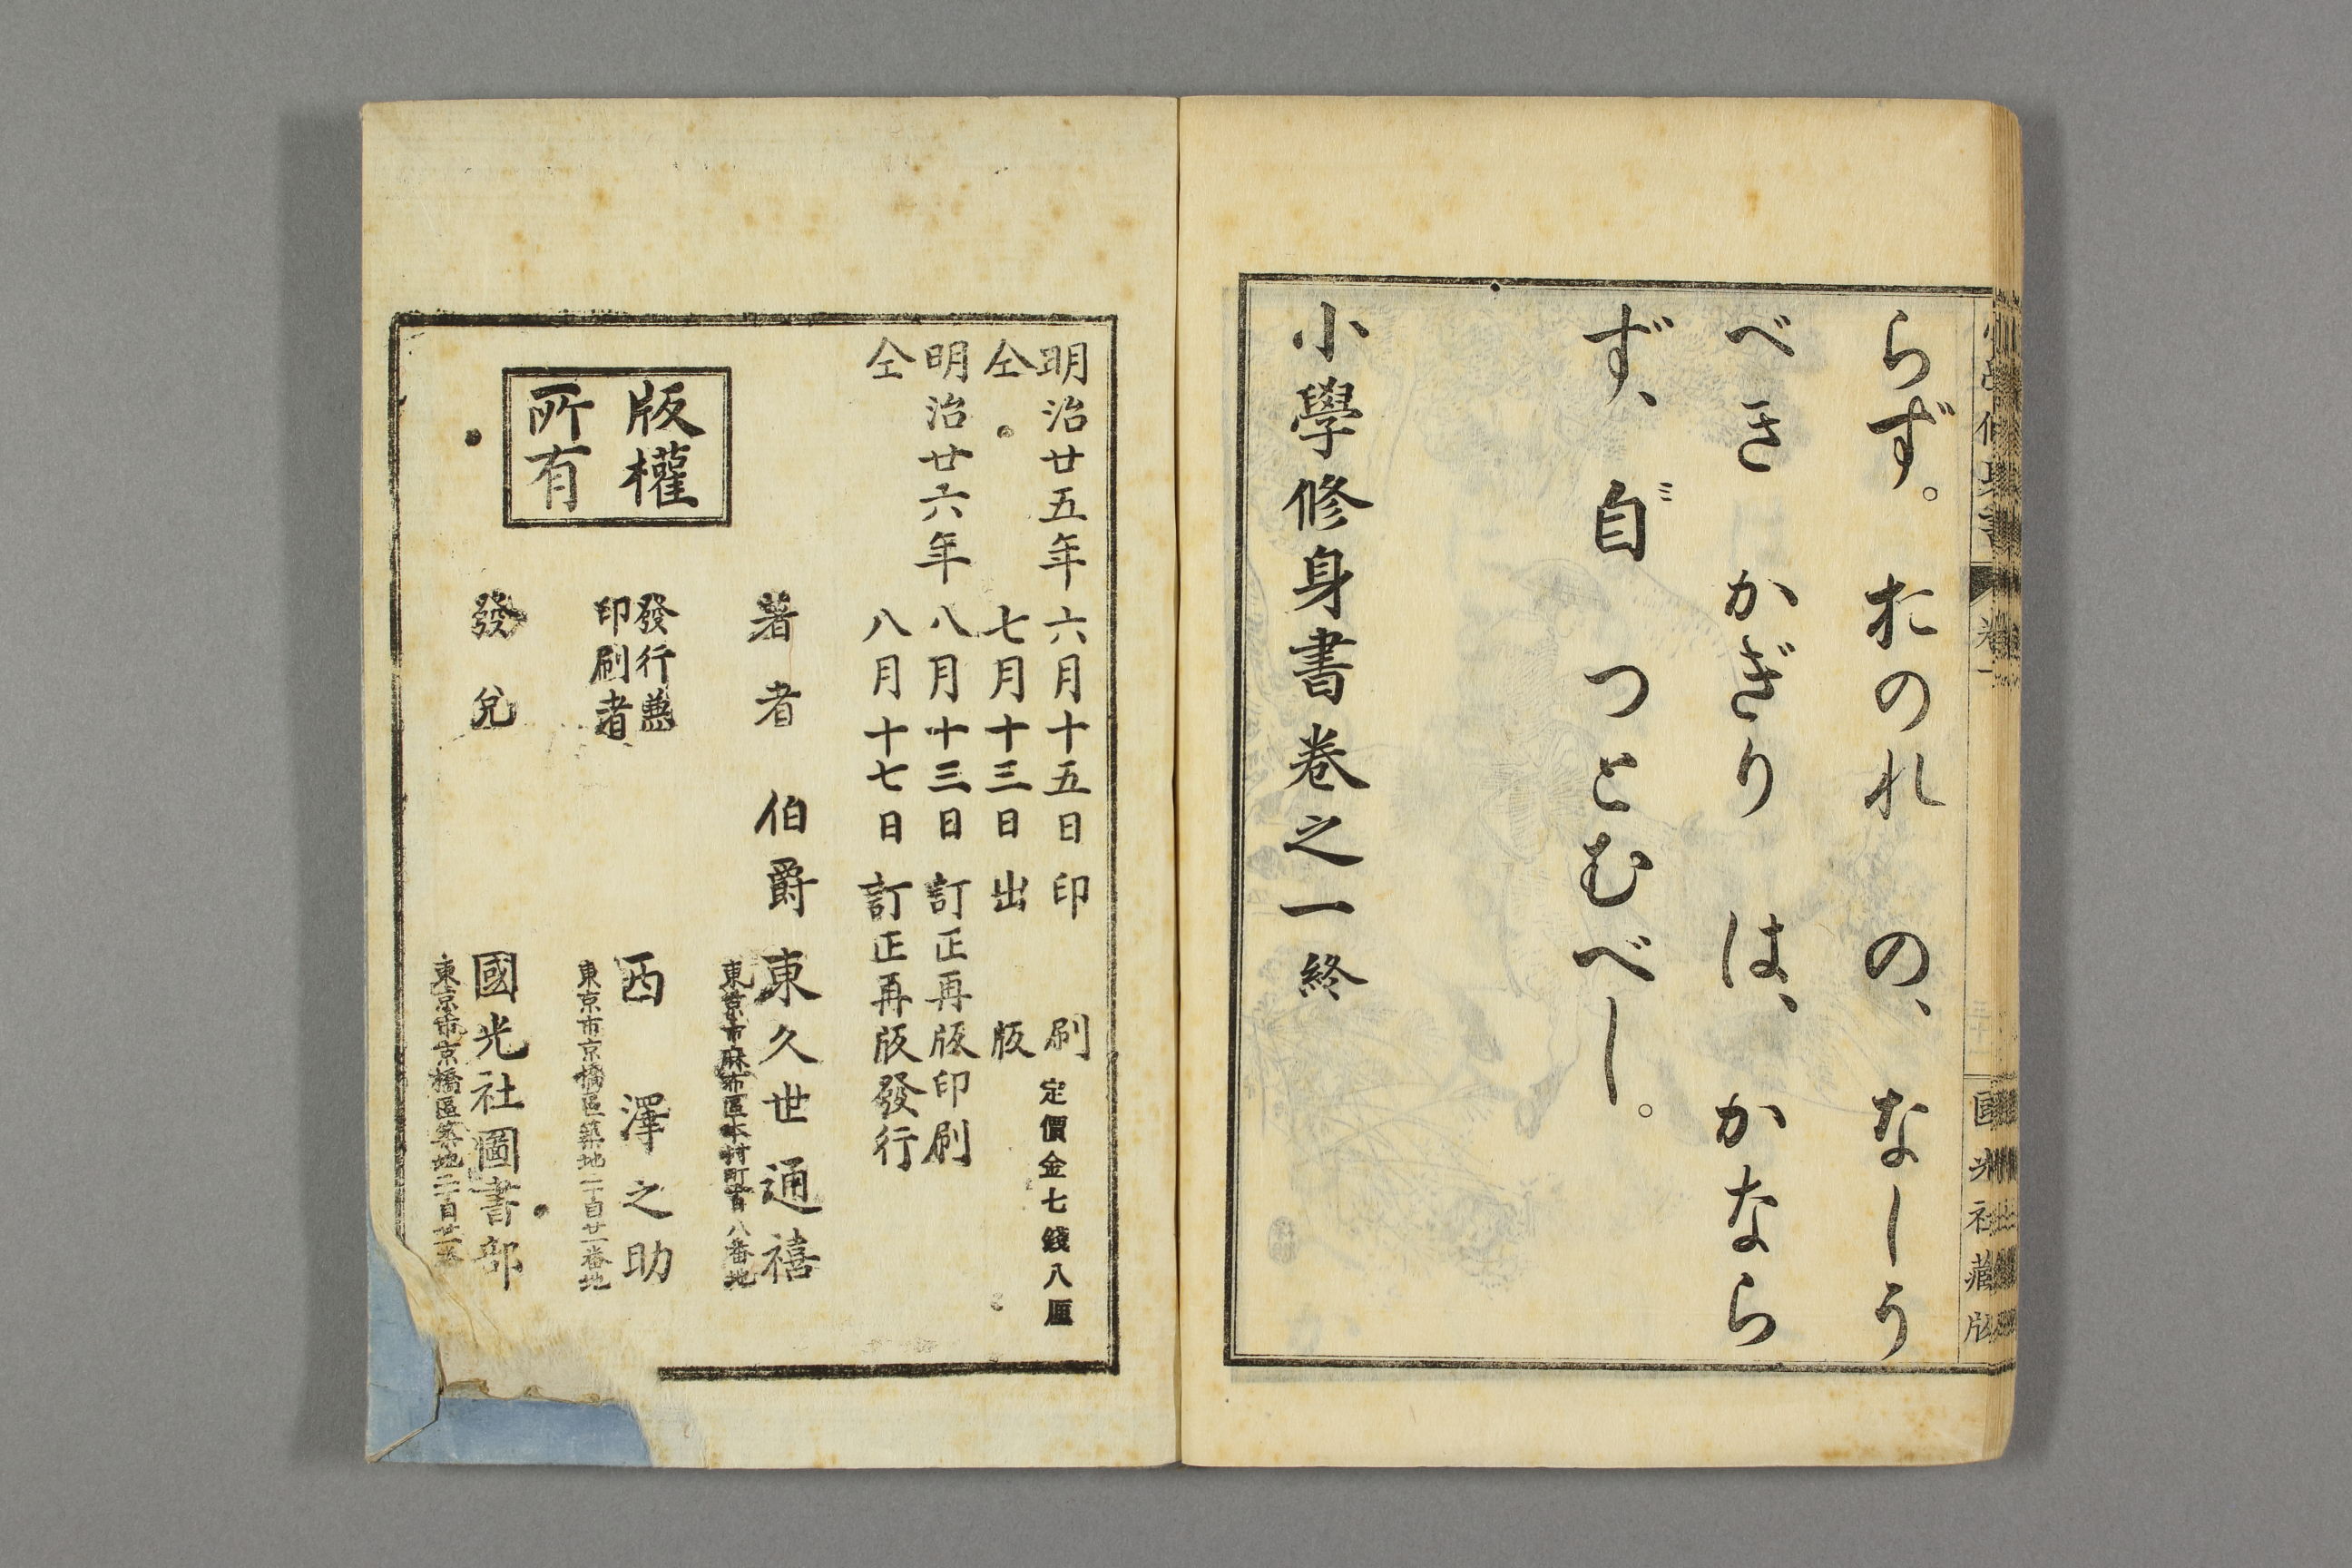 らず。おのれの、なしう
べきかぎりは、かなら
ず、自ミつとむべし。
小學修身書卷之一終
國光社藏版
明治廿五年六月十五日印刷
仝七月十三日出版
明治廿六年八月十三日訂正再版印刷
仝八月十七日訂正再版發行
定價金七錢八厘
著者 伯爵 東久世通禧
東京市麻布區本村町百八番地
發行兼
印刷者
西澤之助
東京市京橋區築地二丁目廿一番地
版權
所有
發兌 國光社圖書部
東京市京橋區築地二丁目廿一番